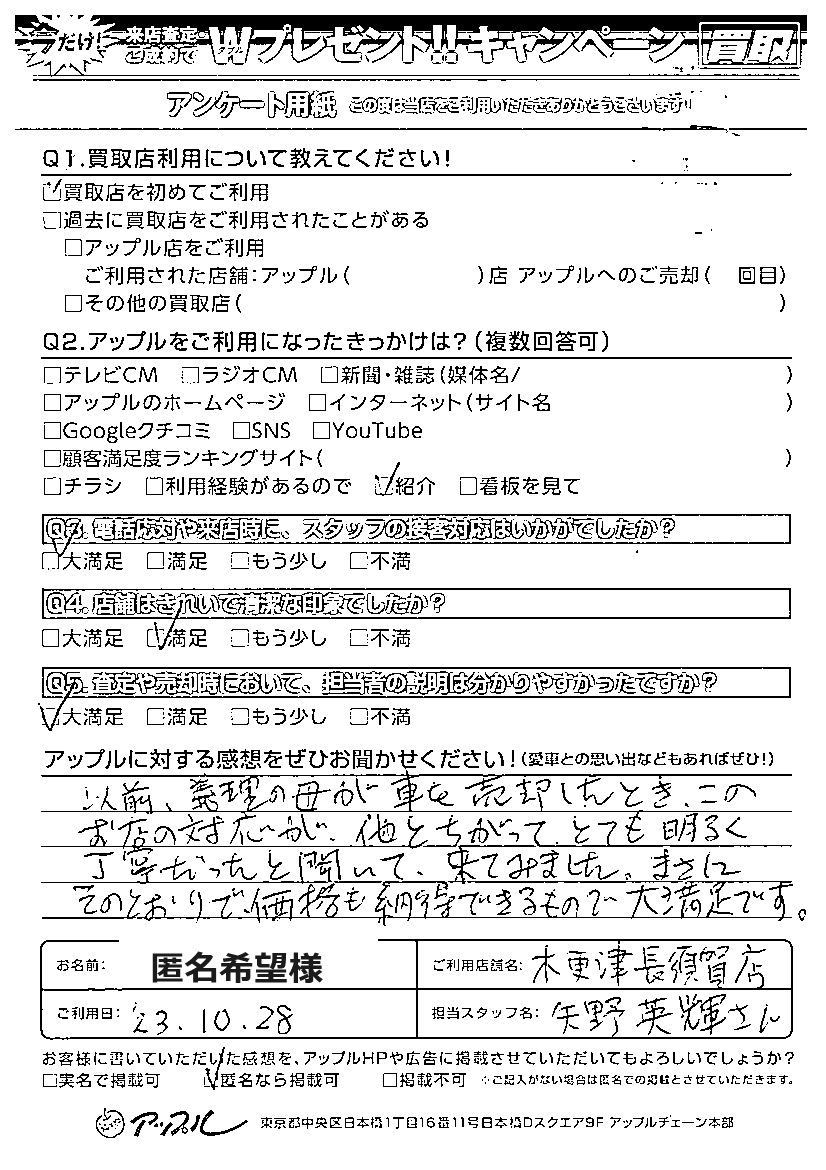 だけ! 来店査定・ご成約で Wプレゼント!! キャンペーン 買取
アンケート用紙 この度は当店をご利用いただきありがとうございます!
Q1.買取店利用について教えてください!
☑買取店を初めてご利用
□過去に買取店をご利用されたことがある
□アップル店をご利用
ご利用された店舗:アップル( )店 アップルへのご売却( 回目)
□その他の買取店( )
Q2.アップルをご利用になったきっかけは?(複数回答可)
□テレビCM □ラジオCM □新聞・雑誌(媒体名/ )
□アップルのホームページ □インターネット(サイト名 )
□Googleクチコミ □SNS □YouTube
□顧客満足度ランキングサイト( )
□チラシ □利用経験があるので ☑紹介 □看板を見て
Q3.電話応対や来店時に、スタッフの接客対応はいかがでしたか?
☑大満足 □満足 □もう少し □不満
Q4.店舗はきれいで清潔な印象でしたか?
□大満足 ☑満足 □もう少し □不満
Q5.査定や売却時において、担当者の説明は分かりやすかったですか?
☑大満足 □満足 □もう少し □不満
アップルに対する感想をぜひお聞かせください!(愛車との思い出などもあればぜひ!)
以前、義理の母が車を売却したとき、この
お店の対応が、他とちがって、とても明るく
丁寧だったと聞いて、来てみました。まさに
そのとおりで、価格も納得できるもので大満足です。
お名前: 匿名希望様 ご利用店舗名: 木更津長須賀店
ご利用日: '23.10.28 担当スタッフ名: 矢野英輝さん
お客様に書いていただいた感想を、アップルHPや広告に掲載させていただいてもよろしいでしょうか?
□実名で掲載可 ☑匿名なら掲載可 □掲載不可 ※ご記入がない場合は匿名での掲載とさせていただきます。
アップル 東京都中央区日本橋1丁目16番11号日本橋Dスクエア9F アップルチェーン本部